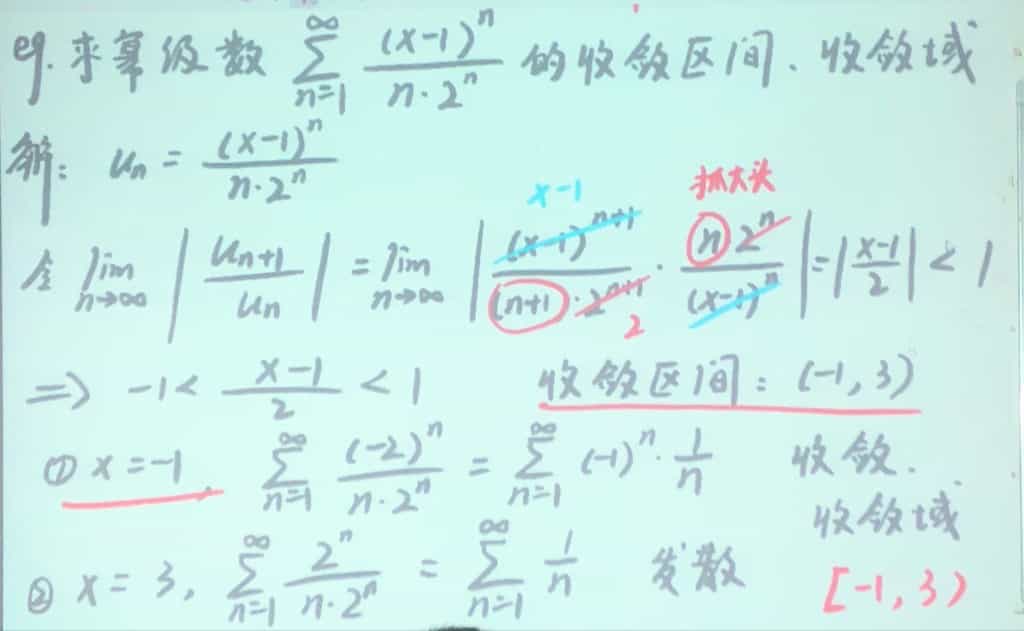 eg. 求幂级数 ∑_{n=1}^{∞} (x-1)^n / (n·2^n) 的收敛区间、收敛域
解: u_n = (x-1)^n / (n·2^n)
x-1 抓大头
令 lim_{n→∞} |u_{n+1} / u_n| = lim_{n→∞} |(x-1)^{n+1} / ((n+1)·2^{n+1}) · n 2^n / (x-1)^n| = |(x-1)/2| < 1
2
⇒ -1 < (x-1)/2 < 1 收敛区间: (-1, 3)
① x = -1, ∑_{n=1}^{∞} (-2)^n / (n·2^n) = ∑_{n=1}^{∞} (-1)^n · 1/n 收敛.
收敛域
② x = 3, ∑_{n=1}^{∞} 2^n / (n·2^n) = ∑_{n=1}^{∞} 1/n 发散
[-1, 3)